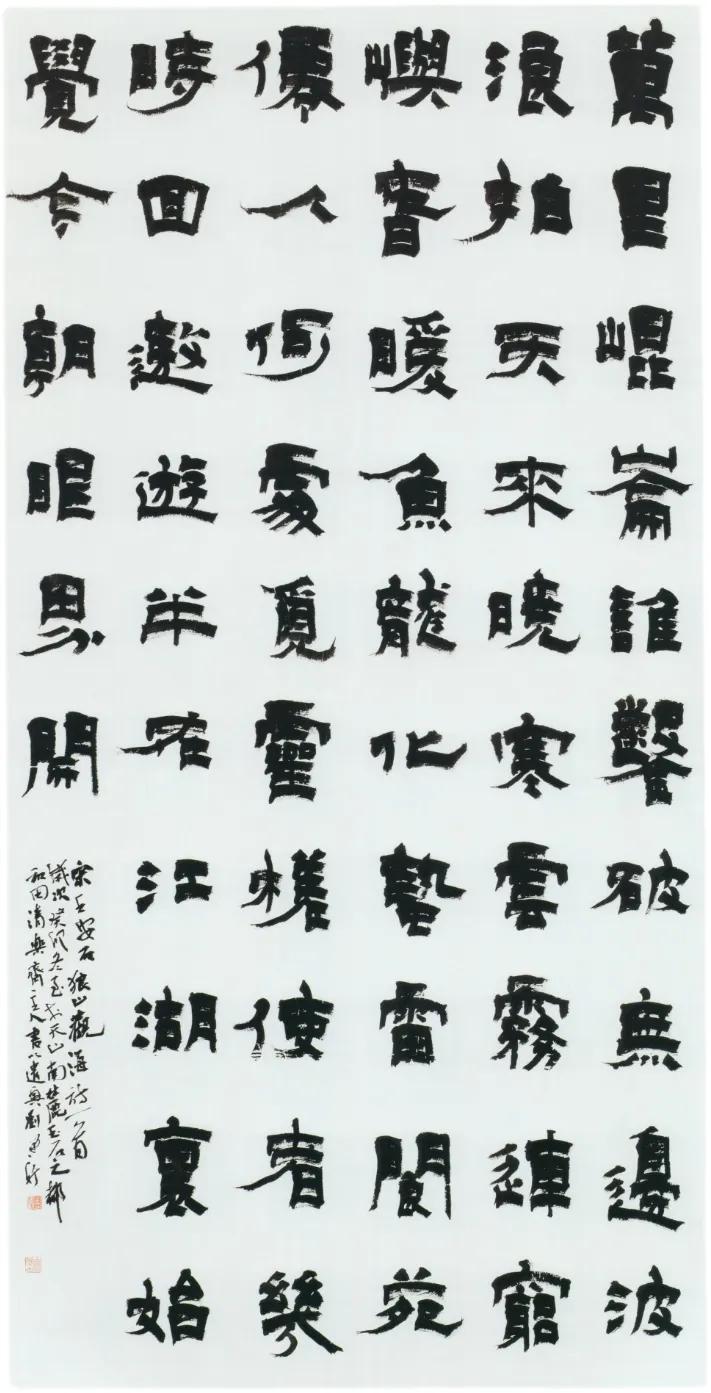 萬里崐崙誰鑿破無邊波
浪拍天來曉寒雲霧連窮
嶼春暖魚龍化蟄雷閬苑
僊人何處覓靈槎使者幾
時回遨遊半在江湖裏始
覺今朝眼界開
宋王安石狼山觀海詩一首
歲次癸卯冬至於天山南麓玉石之都
和田清樂齋主人書以遣興劉